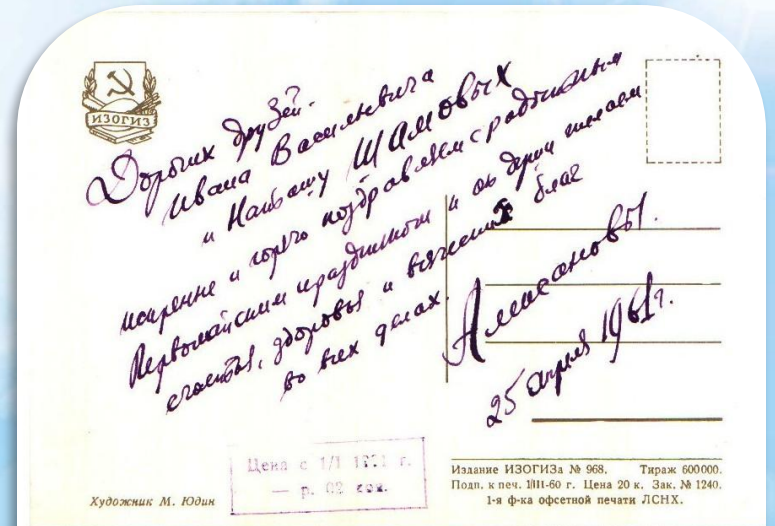 ИЗОГИЗ
Дорогих друзей.
Ивана Васильевича
и Наташу Шамовых
искренне и горячо поздравляем с радостным
Первомайским праздником и от души желаем
счастья, здоровья и всяческих благ
во всех делах.
25 апреля 1961г.
Цена с 1/I 1961 г.
— р. 02 коп.
Художник М. Юдин
Издание ИЗОГИЗа № 968. Тираж 600000.
Подп. к печ. 1/III-60 г. Цена 20 к. Зак. № 1240.
1-я ф-ка офсетной печати ЛСНХ.